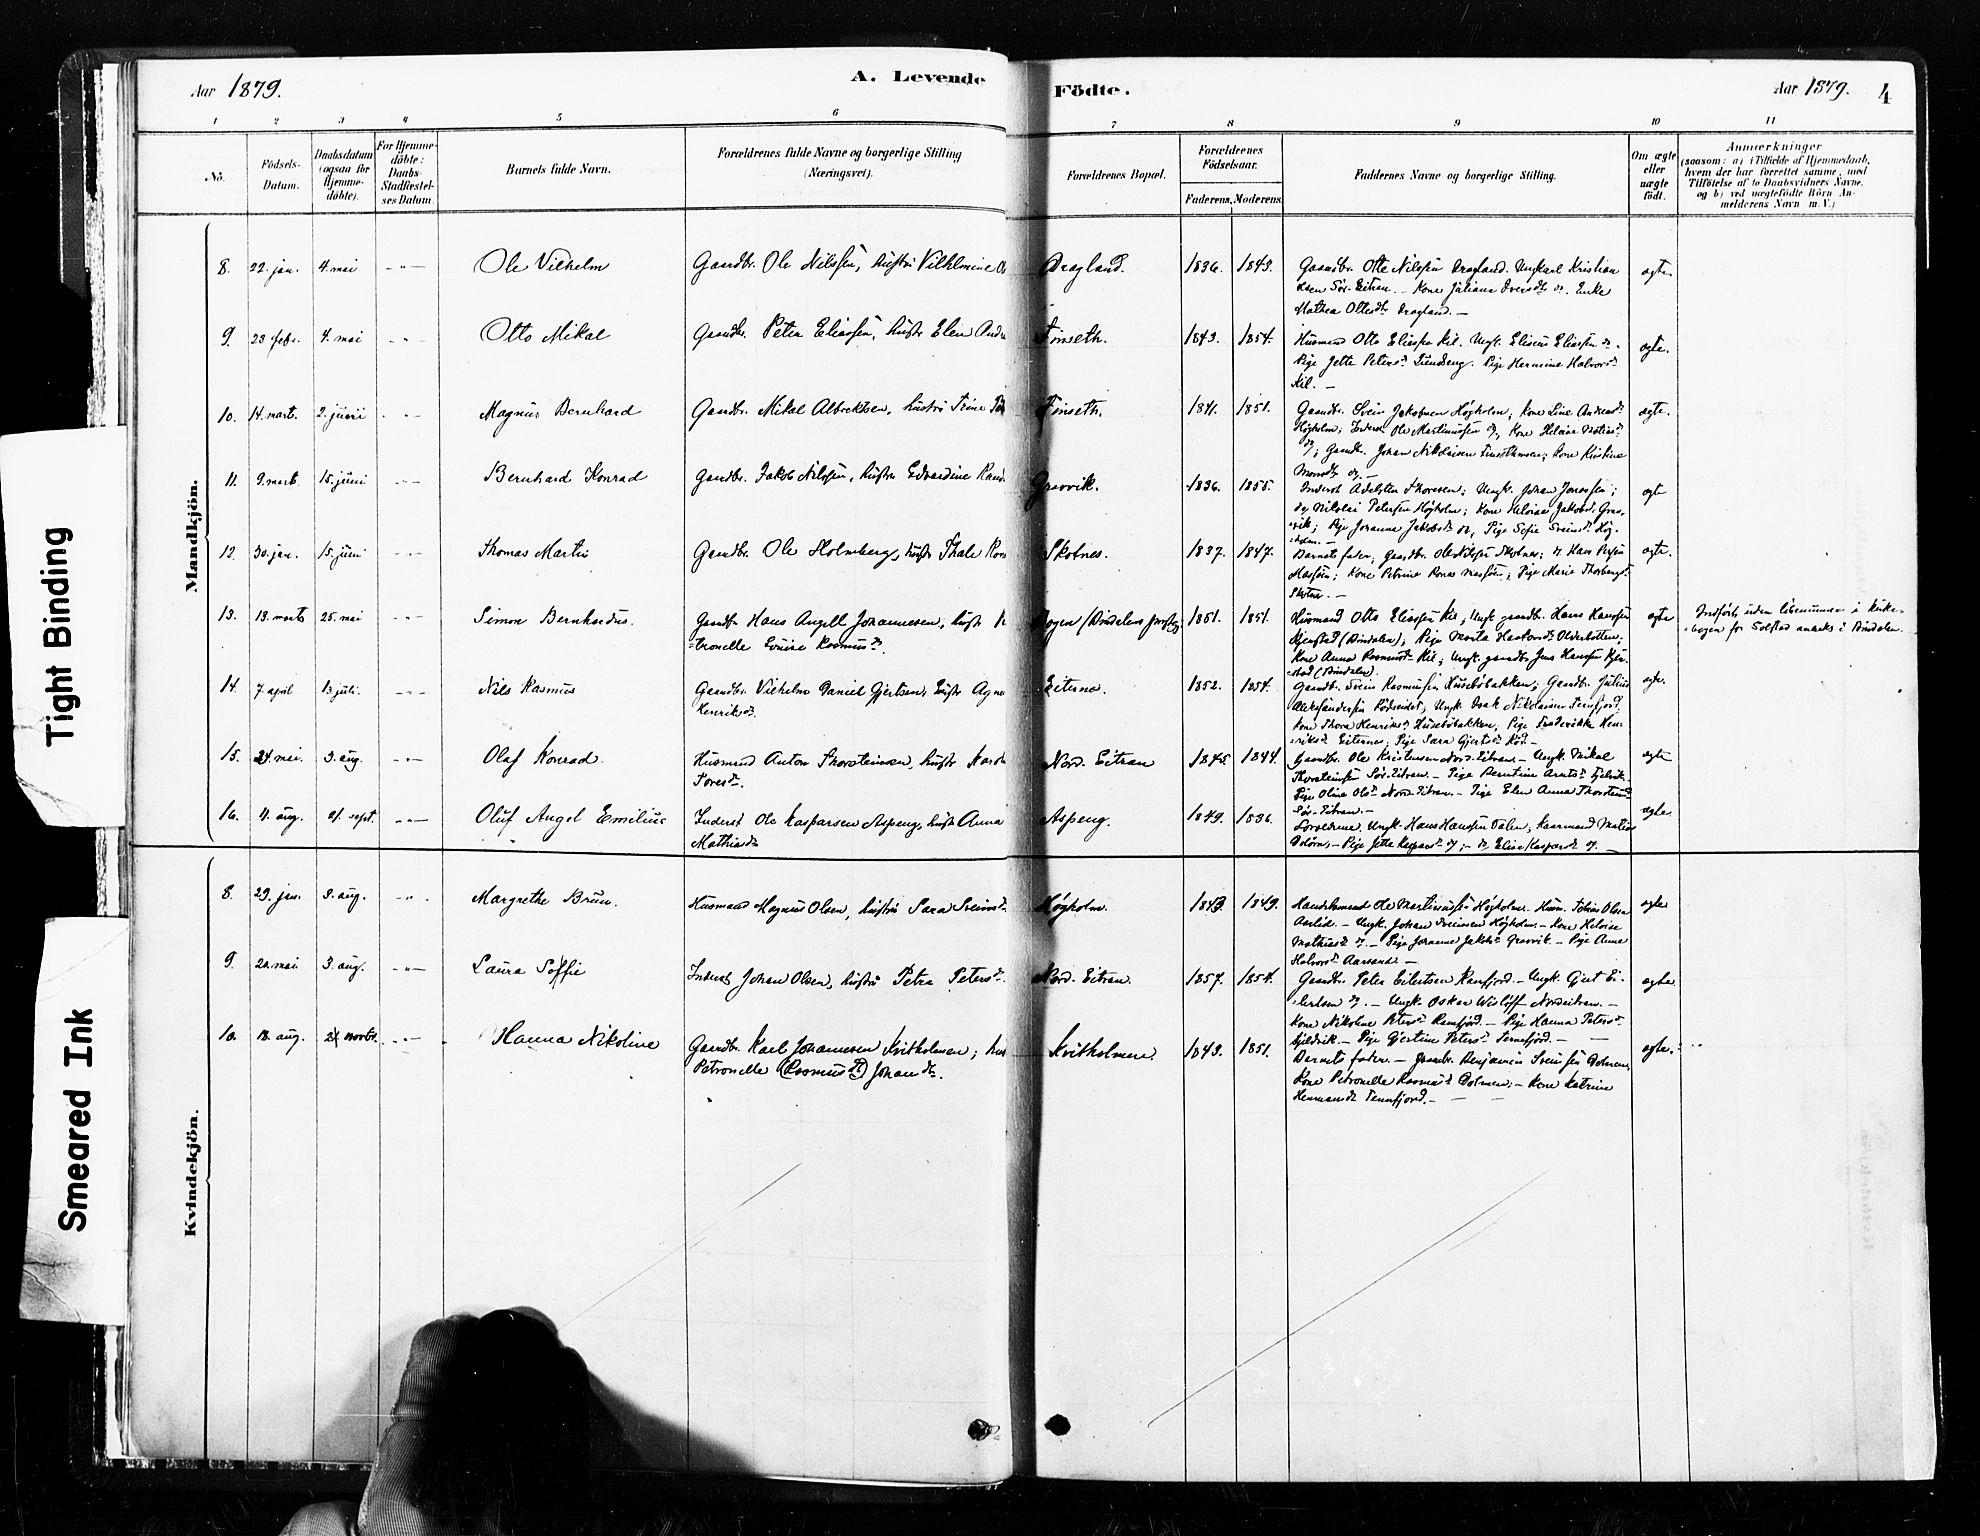 Aar 1879.
A. Levende
Födte.
Aar 1879.
4
1 2 3 4 5 6 7 8 9 10 11
No.
Födsels-
Datum.
Daabsdatum
(ogsaa for
Hjemme-
döbte).
For Hjemme-
döbte:
Daabs-
Stadfæstel-
ses Datum
Barnets fulde Navn.
Forældrenes fulde Navne og borgerlige Stilling
(Næringsvei).
Forældrenes Bopæl.
Forældrenes
Födselsaar.
Faderens. Moderens.
Faddernes Navne og borgerlige Stilling.
Om ægte
eller
uægte
födt.
Anmærkninger
(saasom: a) i Tilfælde af Hjemmedaab,
hvem der har forrettet samme, med
Tilföielse af to Daabsvidners Navne,
og b) ved uægtefödte Börn An-
melderens Navn m. V.)
Mandkjön.
8. 22. jan. 4. mai - " - Ole Vilhelm Gaardbr. Ole Nilssen, hustru Vilhelmine Dragland. 1836. 1843. Gaardbr. Otto Nilssen Dragland. Ungkarl Kristian
Olsen Sör-Eitran. - Kone Juliana
Mathea Ottesdr Dragland. -
ægte
9. 23 febr. 4. mai - " - Otto Mikal Gaardbr. Peter Eliassen, hustr Elen Finseth. 1843. 1854. Husmand Otto Eliassen Kil. Ungk. Eliseus Eliassen
Pige Jette Petersdr Pige Hermine Halvorsdr
Kil. -
ægte.
10. 14. marts. 2. juni - " - Magnus Bernhard Gaardbr. Mikal Albrektsen, hustru Trine Finseth. 1841. 1851. Gaardbr. Svein Jakobsen Högholm; Kone Line Andreasdr
Högholm; Ole Martinussen Kone Heloise Matiasdr
Gaardbr. Johan Nikolaisen Kone Kristine
ægte.
11. 9. marts. 15. juni - " - Bernhard Konrad Gaardbr. Jakob Nilssen, hustru Edvardine Gravvik. 1836. 1855. Inderst Adelsten Thoresen; Ungk. Johan Jonassen;
Nikolai Petersen Högholm; Kone Heloise Jakobsdr Grav-
vik; Pige Johanna Jakobsdr Pige Sofie Sveinsdr Hög-
holm. -
ægte
12. 30. jan. 15. juni - " - Thomas Martin Gaardbr. Ole Holmberg, hustr Thale Skotnes. 1837. 1847. Barnets fader; Gaardbr. Ole Nilssen Skotnes; Hans
Kone Petrine Pige Marie Thorbergsdr
Skotnes. -
ægte.
13. 13. marts 25. mai - " - Simon Bernhardus. Gaardbr Hans Angell Johannesen, hustr
tronelle Lovise Rasmusdr.
1851. 1851. Husmand Otto Eliassen Kil; Ungk gaardbr. Hans Hanssen
(Bindalen); Pige Marta Olderbotten,
Kone Anna Rasmusdr Kil; Ungk. gaardbr Jens Hanssen
(Bindalen).
ægte
Indförte uden löbenummer i kirke-
bogen for Solstad anneks i Bindalen.
14. 7 april 13. juli. - " - Nils Rasmus Gaardbr. Vilhelm Daniel Gjertsen, hustr
Henriksdr
Eiternes. 1852. 1854. Gaardbr. Svein Rasmussen Huseböbakken; Gaardbr. Julius
Aleksandersen Ungk. Isak Nikolaisen Terrfjord;
Kone Thora Henriksdr Huseböbakken; Pige Fredrikke Hen-
riksdr Eiternes; Pige Sara Gjertsdr
ægte.
15. 24. mai. 3. aug. - " - Olaf Konrad. Husmand Anton Thorsteinsen, hustr
Toresdr.
Nord-Eitran 1845. 1844. Gaardbr. Ole Kristensen Nord-Eitran - Ungk. Mikal
Thorsteinsen Sör-Eitran. - Pige Berntine Arntsdr
Pige Oline Olsdr Nord-Eitran. - Pige Elen Anna Thorsteinsdr
Sör-Eitran. -
ægte
16. 11. aug. 21. sept. - " - Oluf Angel Emilius Inderst Ole Kasparsen Aspeng, hustr Anna
Mathiasdr
Aspeng. 1849. 1836. Forældrene. Ungk. Hans Hanssen Dalen; Matias
Pige Jette Elise Kaspersdr
ægte.
Kvindekjön.
8. 29. jan. 3. aug. - " - Margrethe Bruun. Husmand Magnus Olsen, hustru Sara Sveinsdr Högholm. 1843. 1849. Handelsmand Ole Martinussen Högholm. Husm. Tobias Olsen
Aarlid. - Ungk. Johan Sveinsen Högholm. - Kone Heloise
Mathiasdr Pige Johanna Jakobsdr Gravvik. - Pige Anna
Halvorsdr Aarsand. -
ægte
9. 20. mai 3. aug. - " - Laura Soffie Inderst Johan Olsen, hustru Petra Petersdr. Nord-Eitran. 1857. 1854. Gaardbr. Peter Eilertsen Ramfjord. - Ungk. Gjert Ei-
lertsen Ungk. Oskar Wislöff Nordeitran. -
Kone Nikoline Petersdr Ramfjord. - Pige Hanna Petersdr
Pige Gjertine Petersdr Terrfjord. -
ægte
10. 18. aug. - " - Hanna Nikoline Gaardbr. Karl Johannesen Kvitholmen;
Petronelle (Rasmusdr) Johansdr.
Kvitholmen. 1843. 1851. Barnets fader. - Gaardbr. Benjamin Sveinsen Holmen,
Kone Petronelle Rasmusdr Kone Katrine
Hermansdr Terrfjord. -
ægte.
Tight Binding
Smeared Ink